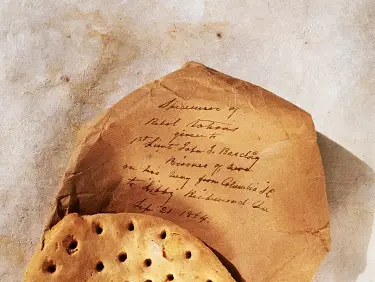 Specimen of
Rebel Rations
given to
1st Lieut John I. Barclay
Prisoner of War
on his way from Columbia S.C.
to Libby Richmond Va
21 1864